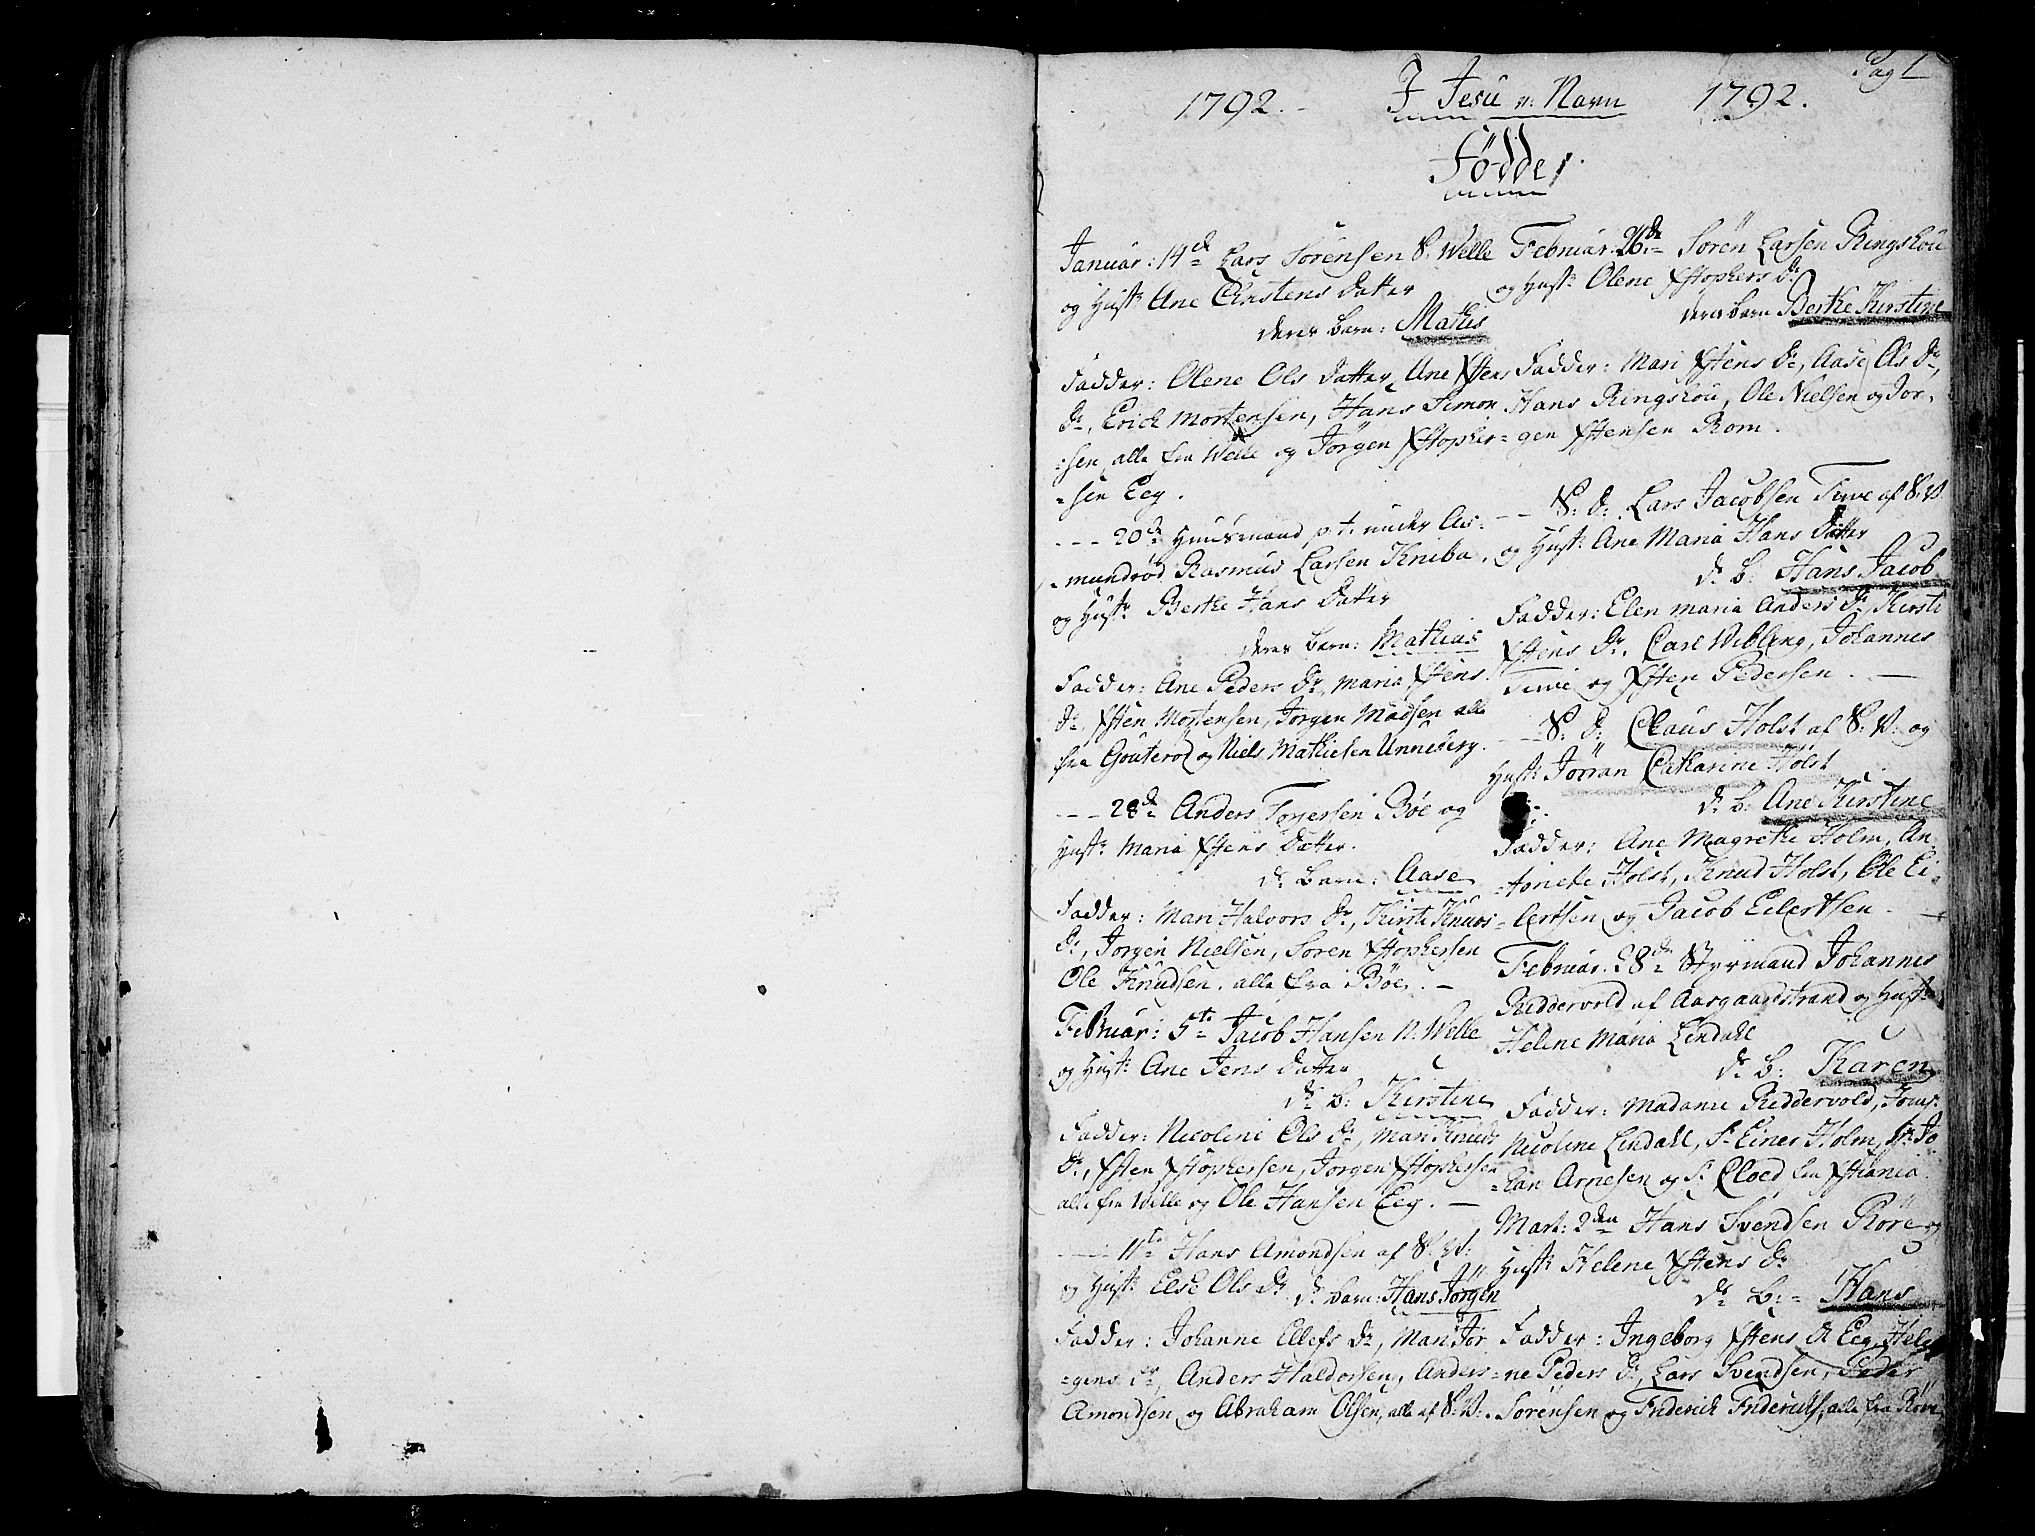 Pag 1
1792. I Jesu Navn 1792.
Födde
Januar: 14de Lars Sörensen S. Welle
og Hustr: Ane Christens Datter
deres barn: Mathis
Fadder: Olene Ols Datter, Une Xstens
Dr, Erich Mortensen, Hans Simon
=sen, alle fra Welle og Jörgen Xstopher=
=sen Eeg.
--- 20de Huusmand p. t. under As=
=mundröd Rasmus Larsen Kniba
og Hustr: Berthe Hans Datter
deres barn: Mathias
Fadder: Ane Peders Dr, Maria Xstens
Dr, Xsten Mortensen, Jörgen Madsen alle
fra Gouteröd og Niels Mathiesen Unneberg.
--- 28de Anders Torgersen Böe og
Hustr: Maria Xstens Datter.
Ds barn: Aase
Fadder: Mari Halvors Dr, Kirsti Knuds
Dr, Jörgen Nielsen, Sören Xstophersen
Ole Knudsen, alle fra Böe. —
Februar: 5te Jacob Hansen N. Welle
og Hustr: Ane Jens Datter
Ds b: Kirstine
Fadder: Nicoline Ols Dr, Mari Knuds
Dr, Xsten Xstophersen, Jörgen Xstophersen
alle fra Welle og Ole Hansen Eeg. —
--- 11te Hans Amondsen af S. V:
og Hustr: Else Ols Dr
Ds barn: Hans Jörgen
Fadder: Johanne Ellefs Dr, Mari Jör
=gens Dr, Anders Haldorsen, Anders
Amondsen og Abraham Olsen, alle af S: V:.
Februar: 26de Sören Larsen Ringskou
og Hustr: Olene Xstophers Dr
deres barn Berthe Kirstine
Fadder: Mari Xstens Dr, Aase Ols Dr,
Hans Ringskou, Ole Nielsen og Jör=
=gen Xstensen Rom.
--- S: D: Lars Jacobsen Tuve af S: V.
og Hustr: Ane Maria Hans Datter
Ds b: Hans Jacob
Fadder: Elen Maria Anders Dr, Kirsti
Xstens Dr, Carl Wibling, Johannes
Tuve og Xsten Pedersen. —
--- S: D: Claus Holst af S: V: og
Hustr: Jörran Catharine Holst
Ds b: Ane Kirstine
Fadder: Ane Magrethe Holm, An=
=toniette Holst, Knud Holst, Ole Ei=
=lertsen og Jacob Eilertsen. —
Februar: 28de Styrmand Johannes
Riddervold af Aasgaardstrand og Hustr:
Helene Maria Lindahl
Ds b: Karen
Fadder: Madame Riddervold, Jomf:
Nicoline Lindahl, Sr Einer Holm, Sr Jo
=han Arnesen og Sr Cloed fra Xstiania.
Mart: 2den Hans Svendsen Röre og
Hustr: Helene Xstens Dr
Ds b: Hans
Fadder: Ingeborg Xstens Dr Eeg, Hele
=ne Peders Dr, Lars Svendsen, Peder
Sörensen og Friderich Friderichs: alle fra Röre